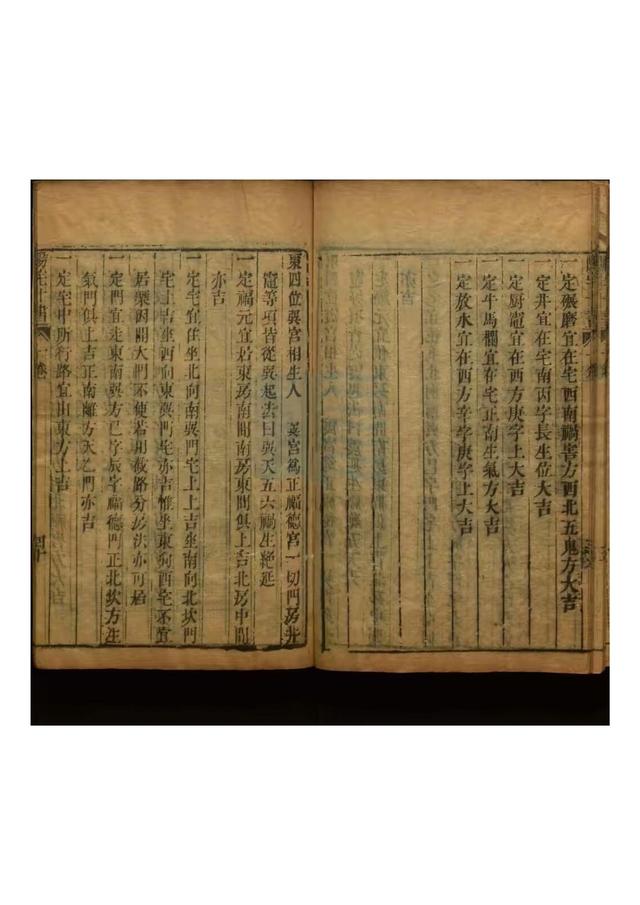 一定碾磨宜在宅西南禍害方西北五鬼方大吉
一定井宜在宅南丙字長生位大吉
一定厨竈宜在西方庚字上大吉
一定牛馬欄宜在宅正南生氣方大吉
一定放水宜在西方辛字庚字上大吉
東四位巽宮相生人 巽宮爲正福德宮一切門房井
竈等項皆從巽起去曰巽天五六禍生絶延
一定福元宜居東房南間南房東間俱上吉北房中間
亦吉
一定宅宜住坐北向南巽門宅上上吉坐南向北坎門
宅上吉坐西向東巽門宅亦吉惟坐東向西宅不宜
居巽因開大門不便若用截路分房法亦可居
一定門宜走東南巽方巳字辰字福德門正北坎方生
氣門俱上吉正南離方天乙門亦吉
一定宅中所行路宜由東方上吉
陽宅十書 一卷